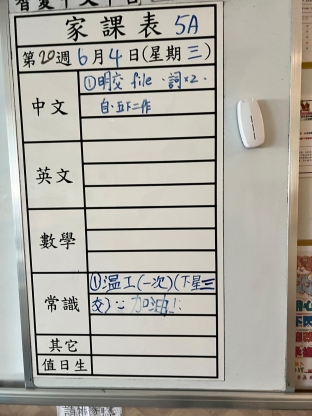 家課表 5A
第20週6月4日(星期三)
中文
①明交 file、詞x2、
自、五下二作
英文
數學
常識
①溫工(一次)(下星三
交)：加油!
其它
值日生